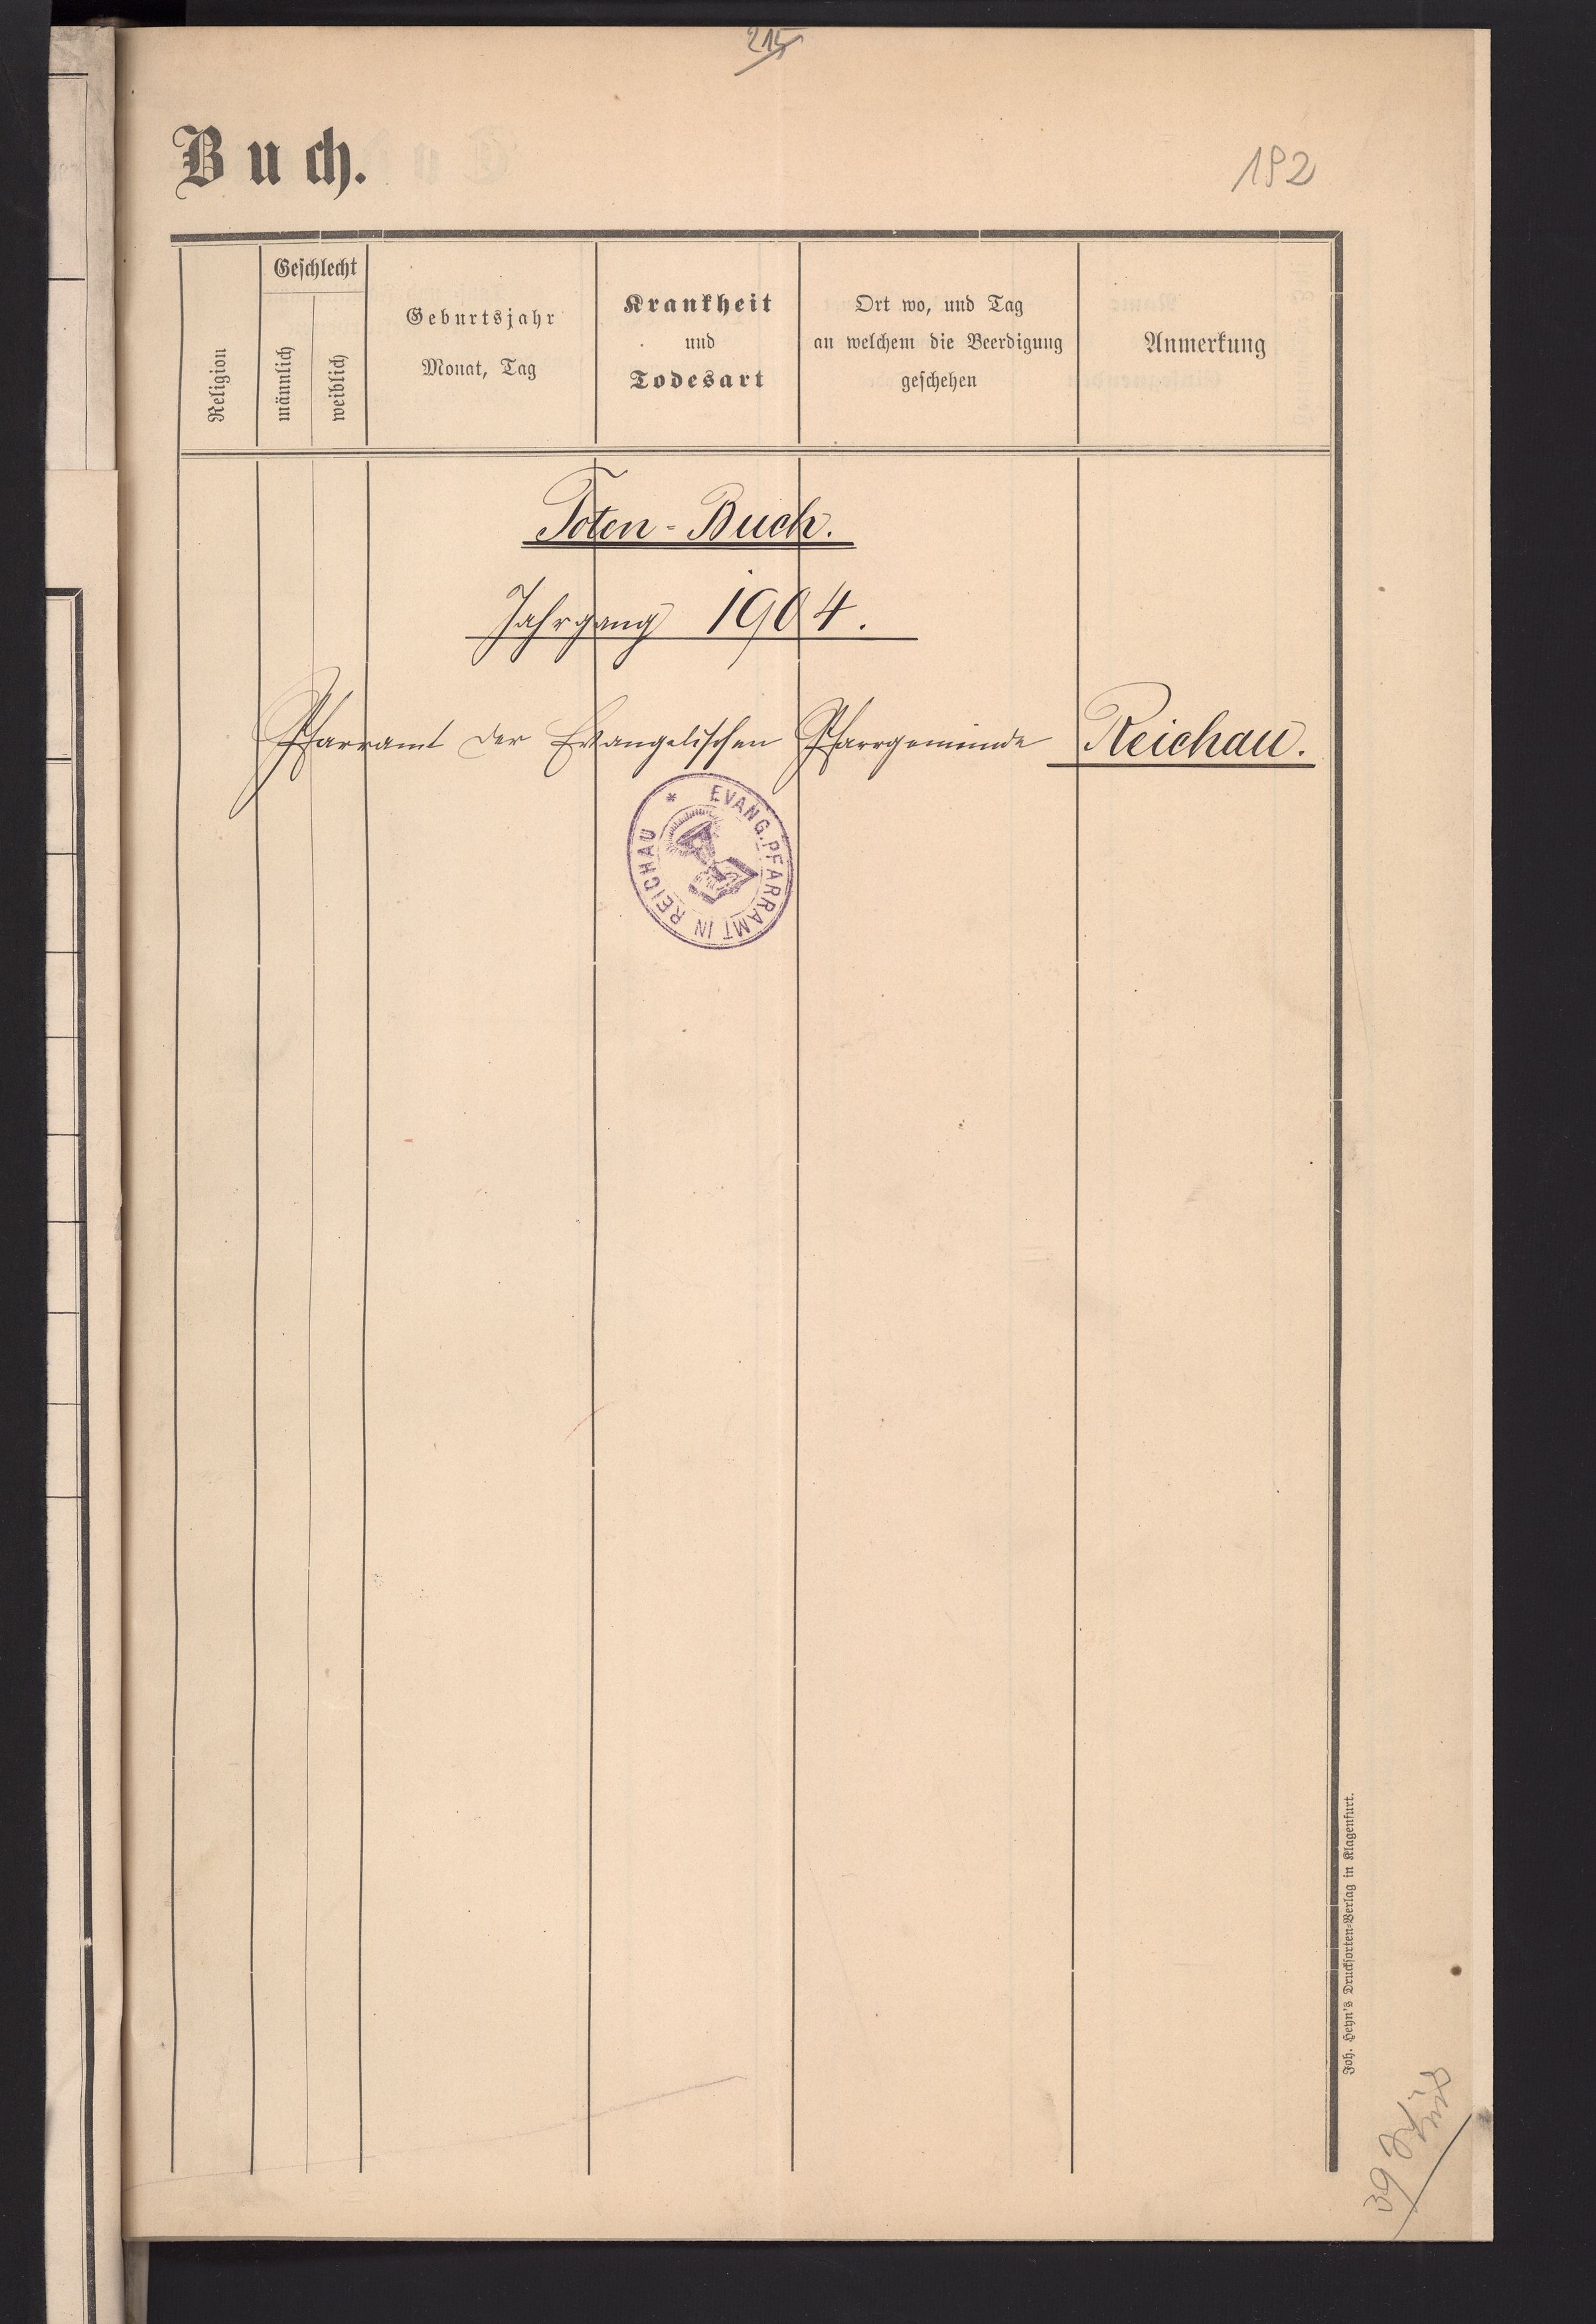 Buch.
192
Religion
Geschlecht
männlich
weiblich
Geburtsjahr
Monat, Tag
Krankheit
und
Todesart
Ort wo, und Tag
an welchem die Beerdigung
geschehen
Anmerkung
Toten-Buch.
Jahrgang 1904.
Pfarramt der Evangelischen Pfarrgemeinde Reichau.
* EVANG. PFARRAMT IN REICHAU
Joh. Heyn's Drucksorten-Verlag in Klagenfurt.
39